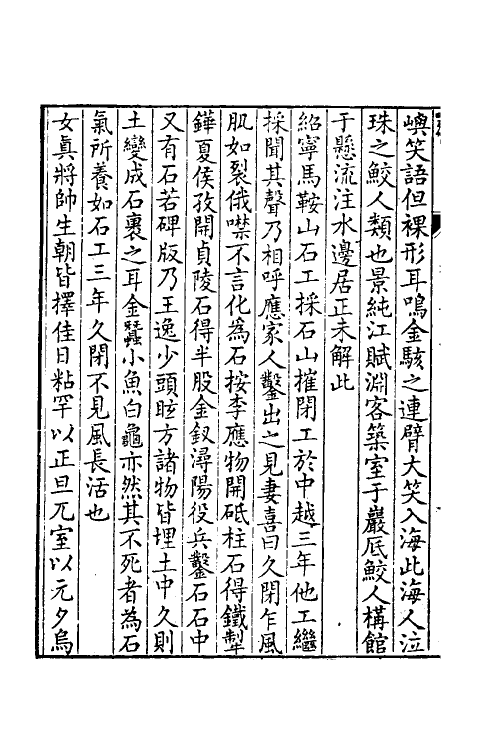 嶼笑語但裸形耳鳴金駭之連臂大笑入海此海人泣
珠之鮫人類也景純江賦淵客築室于巖底鮫人構館
于懸流注水邊居正未解此
紹寧馬鞍山石工採石山摧閉工於中越三年他工繼
採聞其聲乃相呼應家人鑿出之見妻喜曰久閉乍風
肌如裂俄噤不言化為石按李應物開砥柱石得鐵犁
鏵夏侯孜開貞陵石得半股金釵潯陽役兵鑿石石中
又有石若碑版乃王逸少頭眩方諸物皆埋土中久則
土變成石裹之耳金蠶小魚白龜亦然其不死者為石
氣所養如石工三年久閉不見風長活也
女真將帥生朝皆擇佳日粘罕以正旦兀室以元夕烏